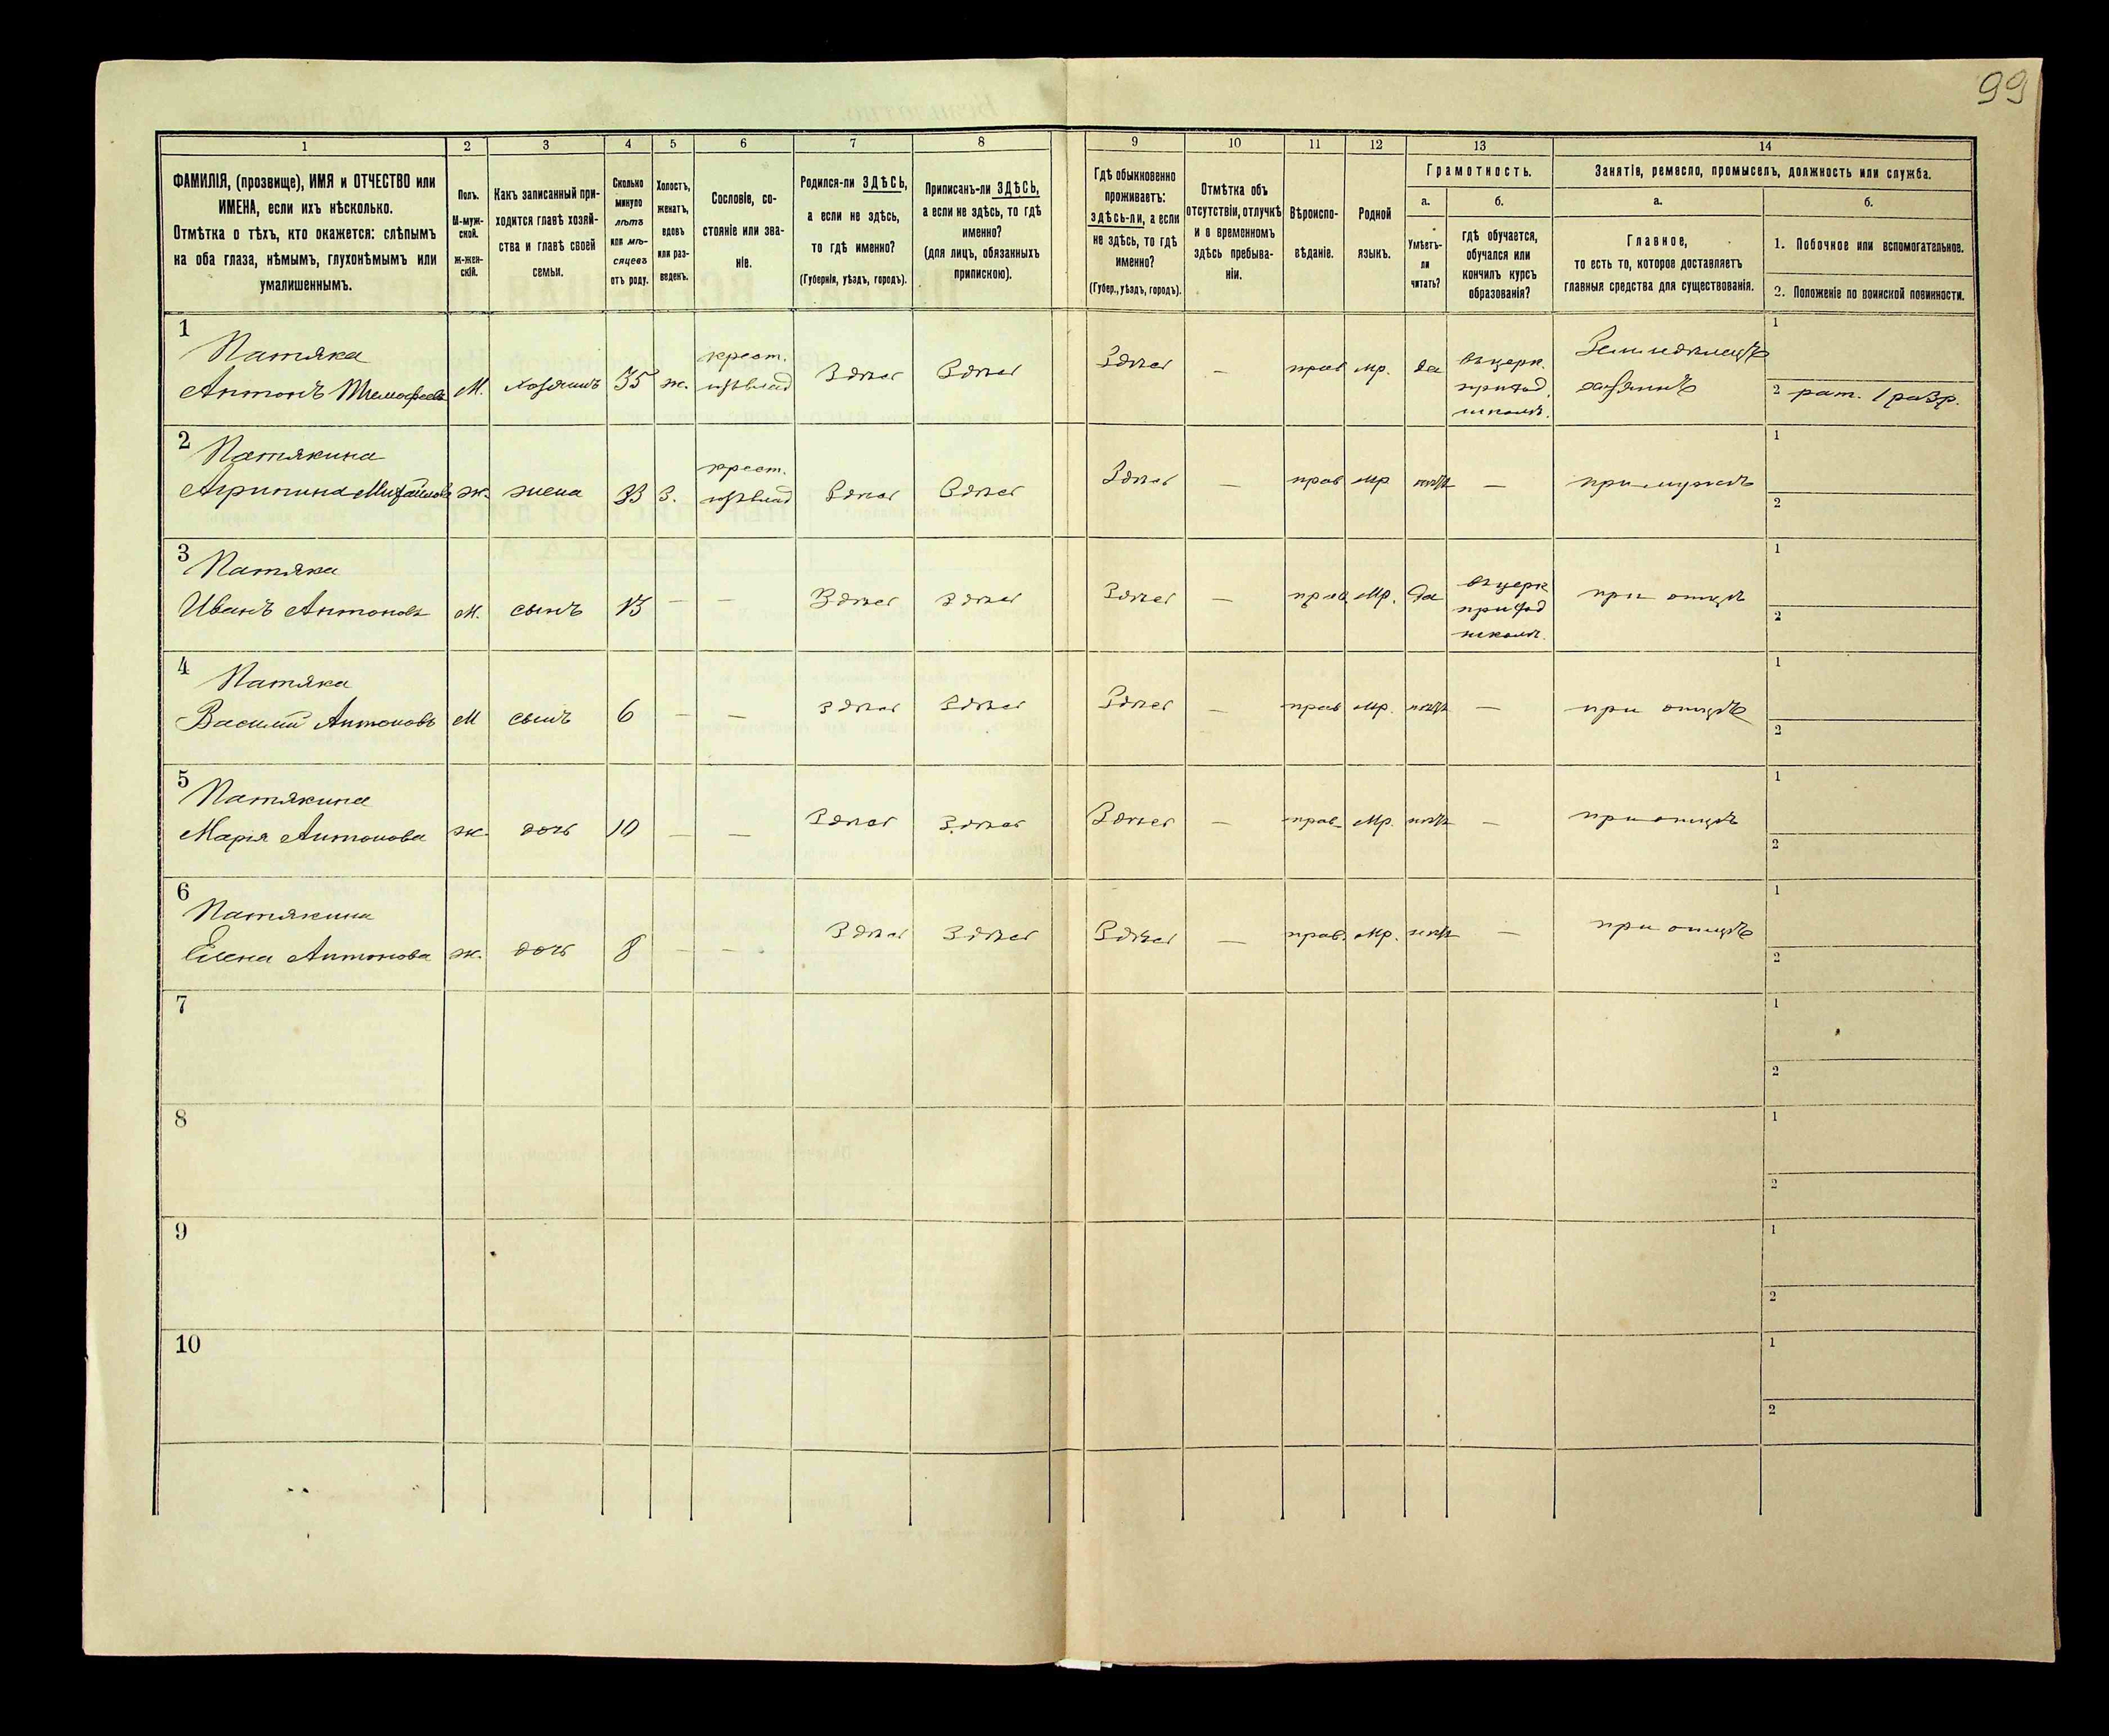 99
1 2 3 4 5 6 7 8 9 10 11 12 13 14
ФАМИЛІЯ, (прозвище), ИМЯ и ОТЧЕСТВО или
ИМЕНА, если ихъ нѣсколько.
Отмѣтка о тѣхъ, кто окажется: слѣпымъ
на оба глаза, нѣмымъ, глухонѣмымъ или
умалишеннымъ.
Полъ.
М-муж-
ской.
Ж-жен-
скій.
Какъ записанный при-
ходится главѣ хозяй-
ства и главѣ своей
семьи.
Сколько
минуло
лѣтъ
или мѣ-
сяцевъ
отъ роду.
Холостъ,
женатъ,
вдовъ
или раз-
веденъ.
Сословіе, со-
стояніе или зва-
ніе.
Родился-ли ЗДѢСЬ,
а если не здѣсь,
то гдѣ именно?
(Губернія, уѣздъ, городъ).
Приписанъ-ли ЗДѢСЬ,
а если не здѣсь, то гдѣ
именно?
(для лицъ, обязанныхъ
припискою).
Гдѣ обыкновенно
проживаетъ:
здѣсь-ли, а если
не здѣсь, то гдѣ
именно?
(Губер., уѣздъ, городъ).
Отмѣтка объ
отсутствіи, отлучкѣ
и о временномъ
здѣсь пребыва-
ніи.
Вѣроиспо-
вѣданіе.
Родной
языкъ.
Грамотность.
а.
Умѣетъ-
ли
читать?
б.
гдѣ обучается,
обучался или
кончилъ курсъ
образованія?
Занятіе, ремесло, промыселъ, должность или служба.
а.
Главное,
то есть то, которое доставляетъ
главныя средства для существованія.
б.
1. Побочное или вспомогательное.
2. Положеніе по воинской повинности.
1
Патяка
Антонъ Тимофеевъ
М.
хозяинъ
35
ж.
крест.
Здѣсь
Здѣсь
Здѣсь
—
прав
мр.
да
въ церк.
приход.
школѣ.
Земледѣлецъ
хозяинъ
1
2 рат. 1 разр.
2
Патякина
Агрипина Михайлова
ж.
жена
33
з.
крест.
Здѣсь
Здѣсь
Здѣсь
—
прав
мр
нѣтъ
—
при мужѣ
1
2
3
Патяка
Иванъ Антоновъ
М.
сынъ
13
—
—
Здѣсь
Здѣсь
Здѣсь
—
прав.
мр.
да
въ церк
приход
школѣ.
при отцѣ
1
2
4
Патяка
Василий Антоновъ
М
сынъ
6
—
—
Здѣсь
Здѣсь
Здѣсь
—
прав
мр.
нѣтъ
—
при отцѣ
1
2
5
Патякина
Марія Антонова
ж.
дочь
10
—
—
Здѣсь
Здѣсь
Здѣсь
—
прав.
мр.
нѣтъ
—
при отцѣ
1
2
6
Патякина
Елена Антонова
ж.
дочь
8
—
—
Здѣсь
Здѣсь
Здѣсь
—
прав.
мр.
нѣтъ
—
при отцѣ
1
2
7
1
2
8
1
2
9
1
2
10
1
2